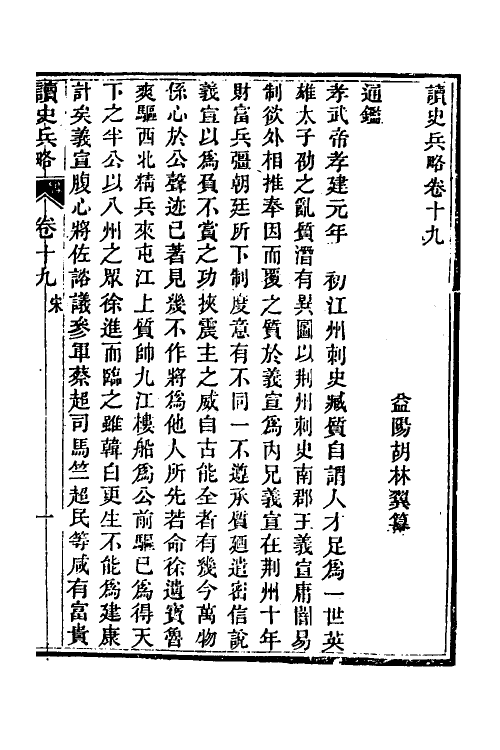 讀史兵略卷十九
益陽胡林翼纂
通鑑
孝武帝孝建元年　初江州刺史臧質自謂人才足爲一世英
雄太子劭之亂質潛有異圖以荆州刺史南郡王義宣庸闇易
制欲外相推奉因而覆之質於義宣爲內兄義宣在荆州十年
財富兵彊朝廷所下制度意有不同一不遵承質廼遣密信說
義宣以爲負不賞之功挾震主之威自古能全者有幾今萬物
係心於公聲迹已著見幾不作將爲他人所先若命徐遺寶魯
爽驅西北精兵來屯江上質帥九江樓船爲公前驅已爲得天
下之半公以八州之眾徐進而臨之雖韓白更生不能爲建康
計矣義宣腹心將佐諮議參軍蔡超司馬竺超民等咸有富貴
讀史兵略　卷十九　宋　一